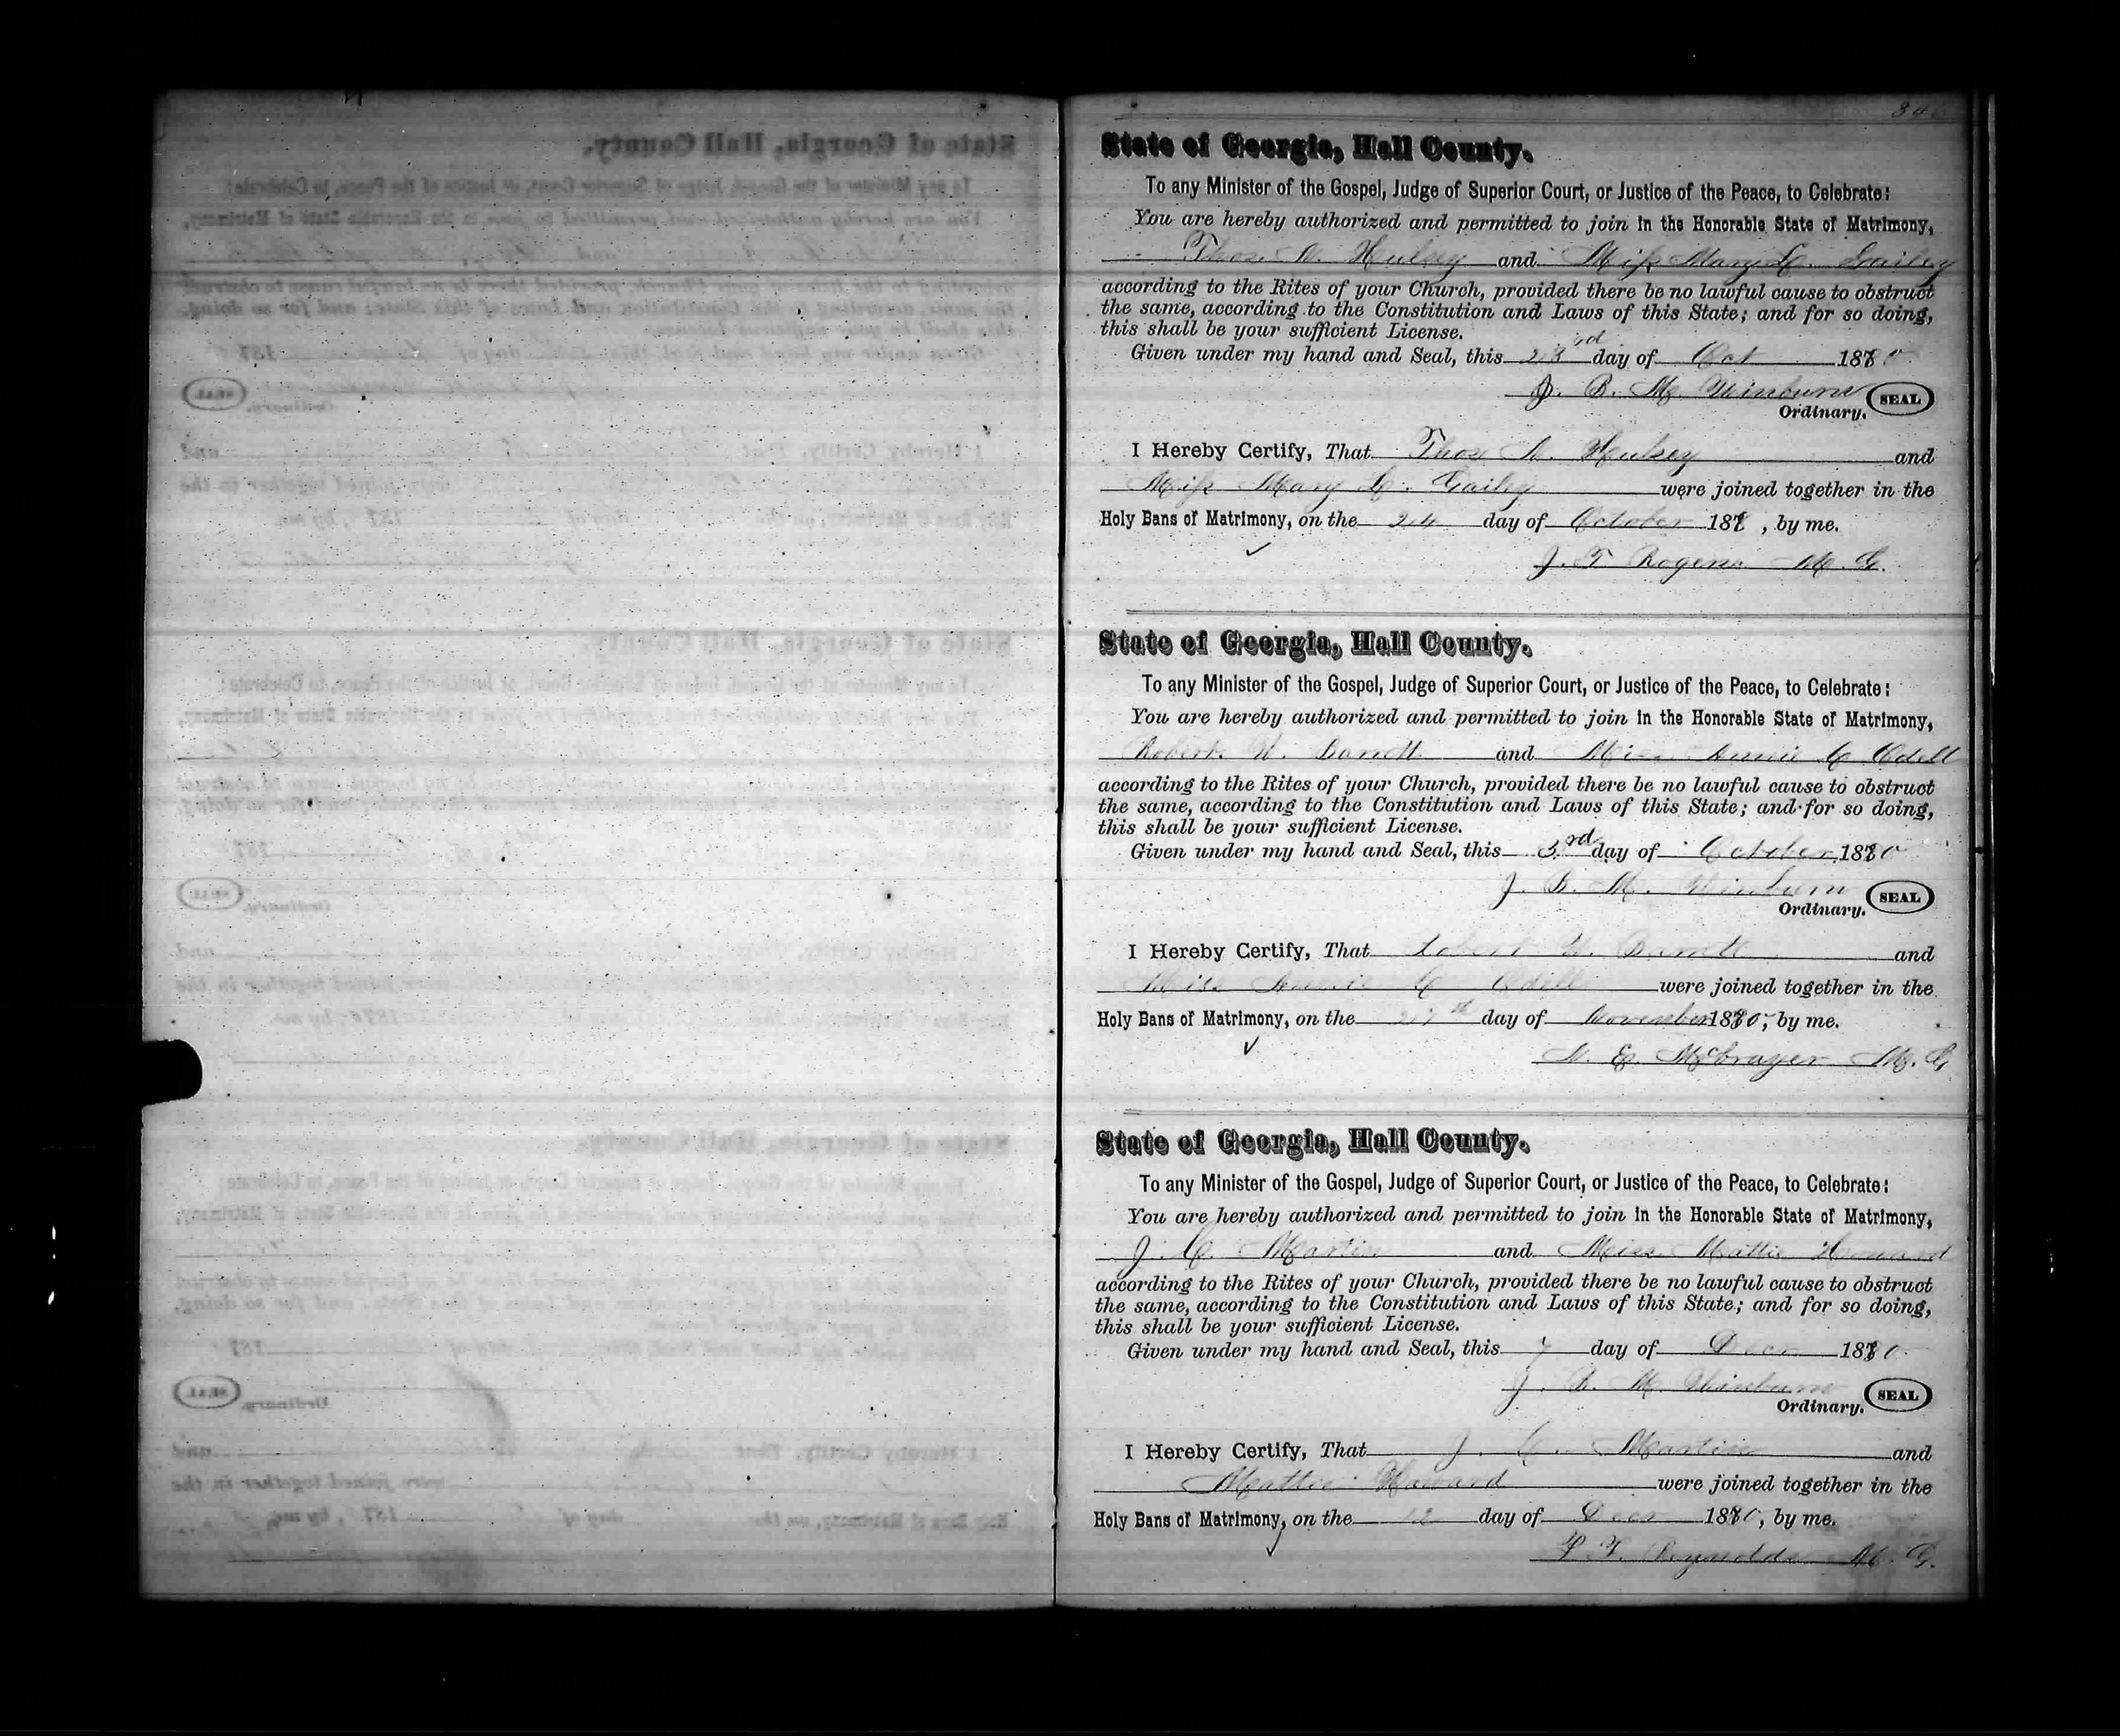 State of Georgia, Hall County.
To any Minister of the Gospel, Judge of Superior Court, or Justice of the Peace, to Celebrate:
You are hereby authorized and permitted to join in the Honorable State of Matrimony,
Thos. N. Hulsey and Miss Mary L. Gailey
according to the Rites of your Church, provided there be no lawful cause to obstruct
the same, according to the Constitution and Laws of this State; and for so doing,
this shall be your sufficient License.
Given under my hand and Seal, this 23rd day of Oct 1880
J. B. M. Winburn SEAL
Ordinary.
I Hereby Certify, That Thos N. Hulsey and
Miss Mary L. Gailey were joined together in the
Holy Bans of Matrimony, on the 24 day of October 188 , by me.
J. T. Rogers M. G.
State of Georgia, Hall County.
To any Minister of the Gospel, Judge of Superior Court, or Justice of the Peace, to Celebrate:
You are hereby authorized and permitted to join in the Honorable State of Matrimony,
Robert W. Barrett and Miss Annie C Odell
according to the Rites of your Church, provided there be no lawful cause to obstruct
the same, according to the Constitution and Laws of this State; and for so doing,
this shall be your sufficient License.
Given under my hand and Seal, this 3rd day of October 1880
J. B. M. Winburn SEAL
Ordinary.
I Hereby Certify, That Robert W. Barrett and
Miss Annie C Odell were joined together in the
Holy Bans of Matrimony, on the day of November 1880, by me.
McBrayer M. G
State of Georgia, Hall County.
To any Minister of the Gospel, Judge of Superior Court, or Justice of the Peace, to Celebrate:
You are hereby authorized and permitted to join in the Honorable State of Matrimony,
J. C. Martin and Miss Mattie Howard
according to the Rites of your Church, provided there be no lawful cause to obstruct
the same, according to the Constitution and Laws of this State; and for so doing,
this shall be your sufficient License.
Given under my hand and Seal, this 7 day of Decr 1880
J. B. M. Winburn SEAL
Ordinary.
I Hereby Certify, That J. C. Martin and
Mattie Howard were joined together in the
Holy Bans of Matrimony, on the 12 day of Decr 1880, by me.
Reynolds M. G.